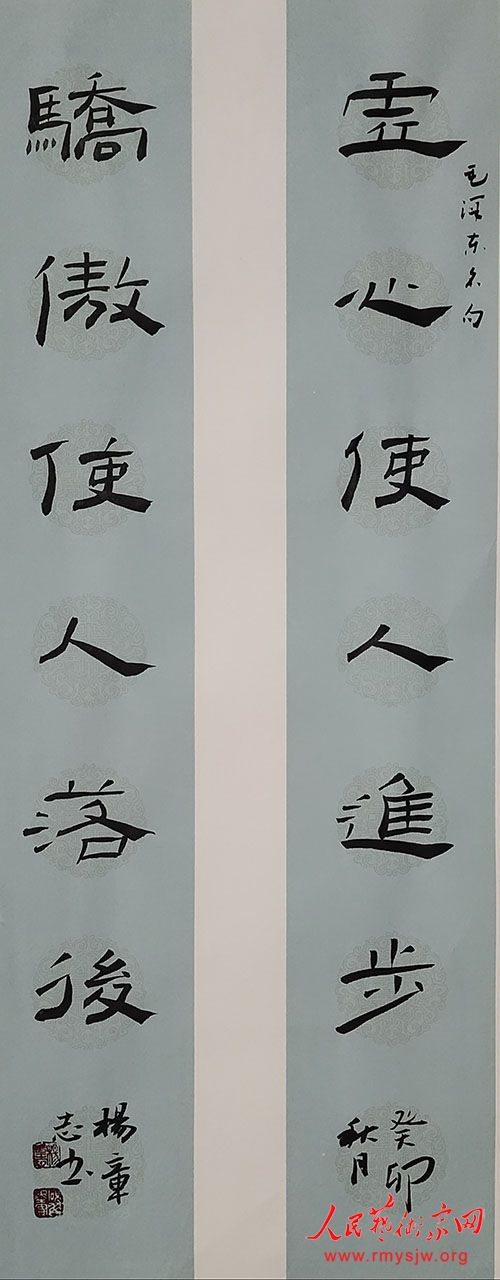 虛心使人進步
毛澤东名句
癸卯
秋月
驕傲使人落後
楊章
志书
人民藝術家网
www.rmysjw.org